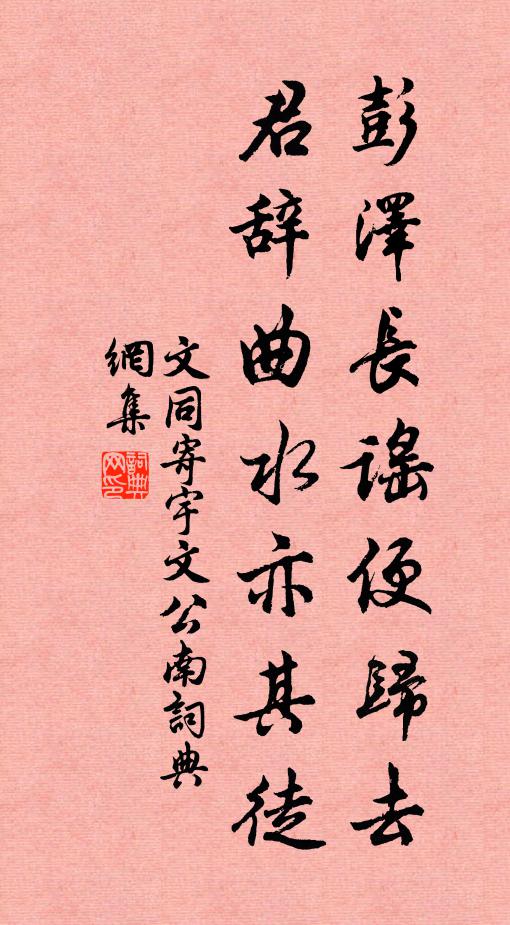 彭澤長謠便歸去
君辞曲水亦其徒
文同寄宇文公南詞典
網集
詞典網印